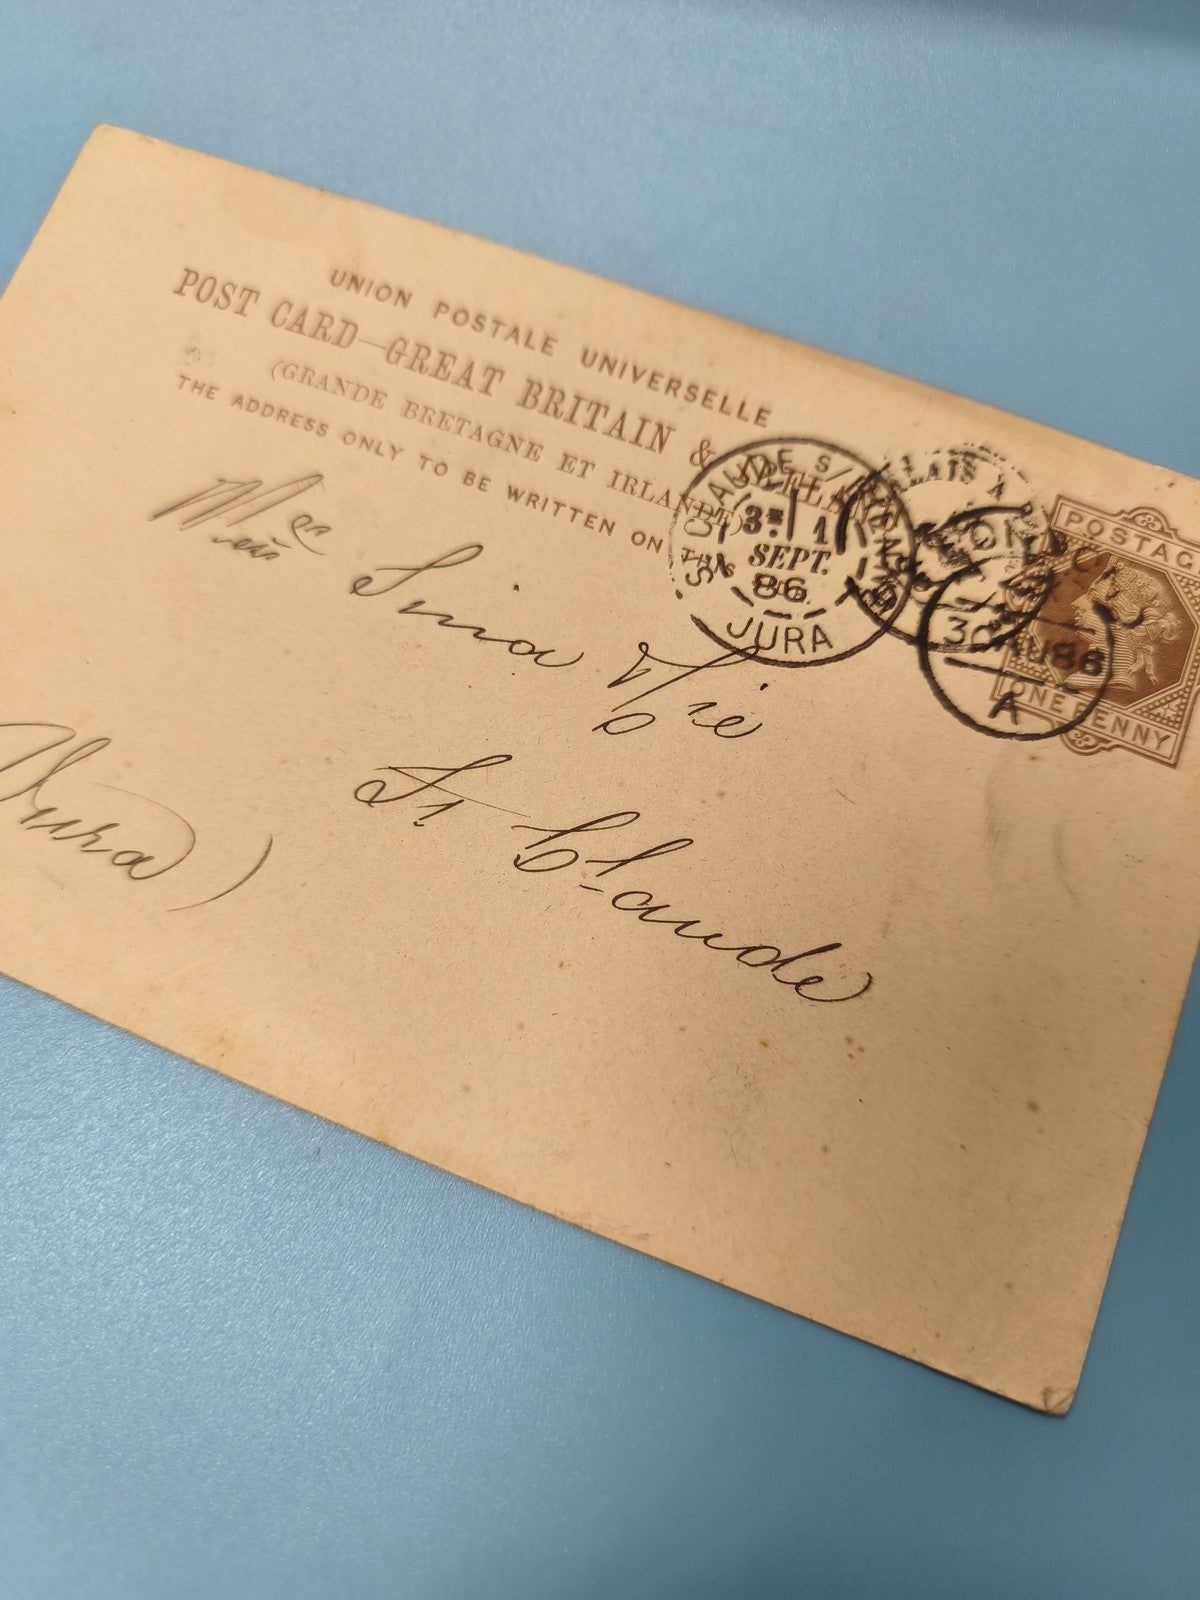 UNION POSTALE UNIVERSELLE
POST CARD—GREAT BRITAIN & IRELAND
(GRANDE BRETAGNE ET IRLANDE)
THE ADDRESS ONLY TO BE WRITTEN ON THIS
ST CLAUDE S/
3E 1
SEPT.
86
JURA
CALAIS A
30 AU 86
A
POSTAGE
ONE PENNY
Sina
St Claude
Jura)